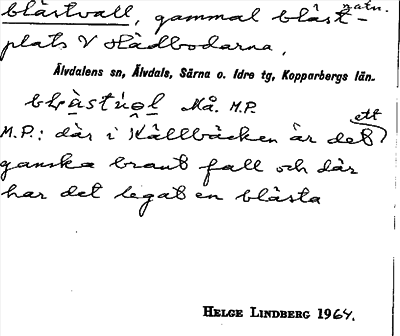 blästvall, gammal bläst- natn.
plats V Hådbodarna,
Älvdalens sn, Älvdals, Särna o. Idre tg, Kopparbergs län.
Må. M.P.
M.P.: där i Källbäcken är det ett
ganska brant fall och där
har det legat en blästa
HELGE LINDBERG 1964.